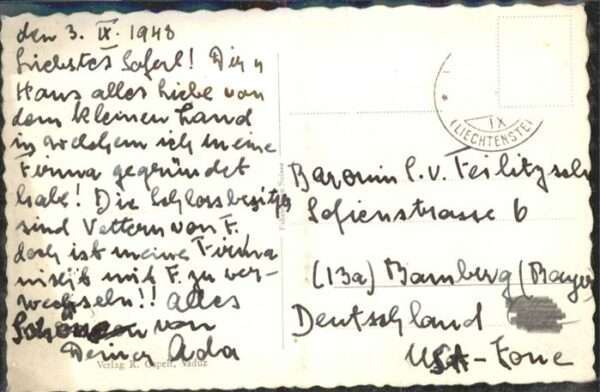 den 3. IX. 1948
Liebstes Soferl! Dir u
Hans alles Liebe von
dem kleinen Land
in welchem ich meine
Firma gegründet
habe! Die Schlossbesitzer
sind Vettern von F.
doch ist meine Firma
nicht mit F. zu ver-
wechseln!! Alles
Schöne von
Deiner Ada
Verlag R. Vaduz
IX
LIECHTENSTE
Baronin S. v. Feilitzsch
Sofienstrasse 6
(13a) Bamberg (Bayer
Deutschland
USA-Zone